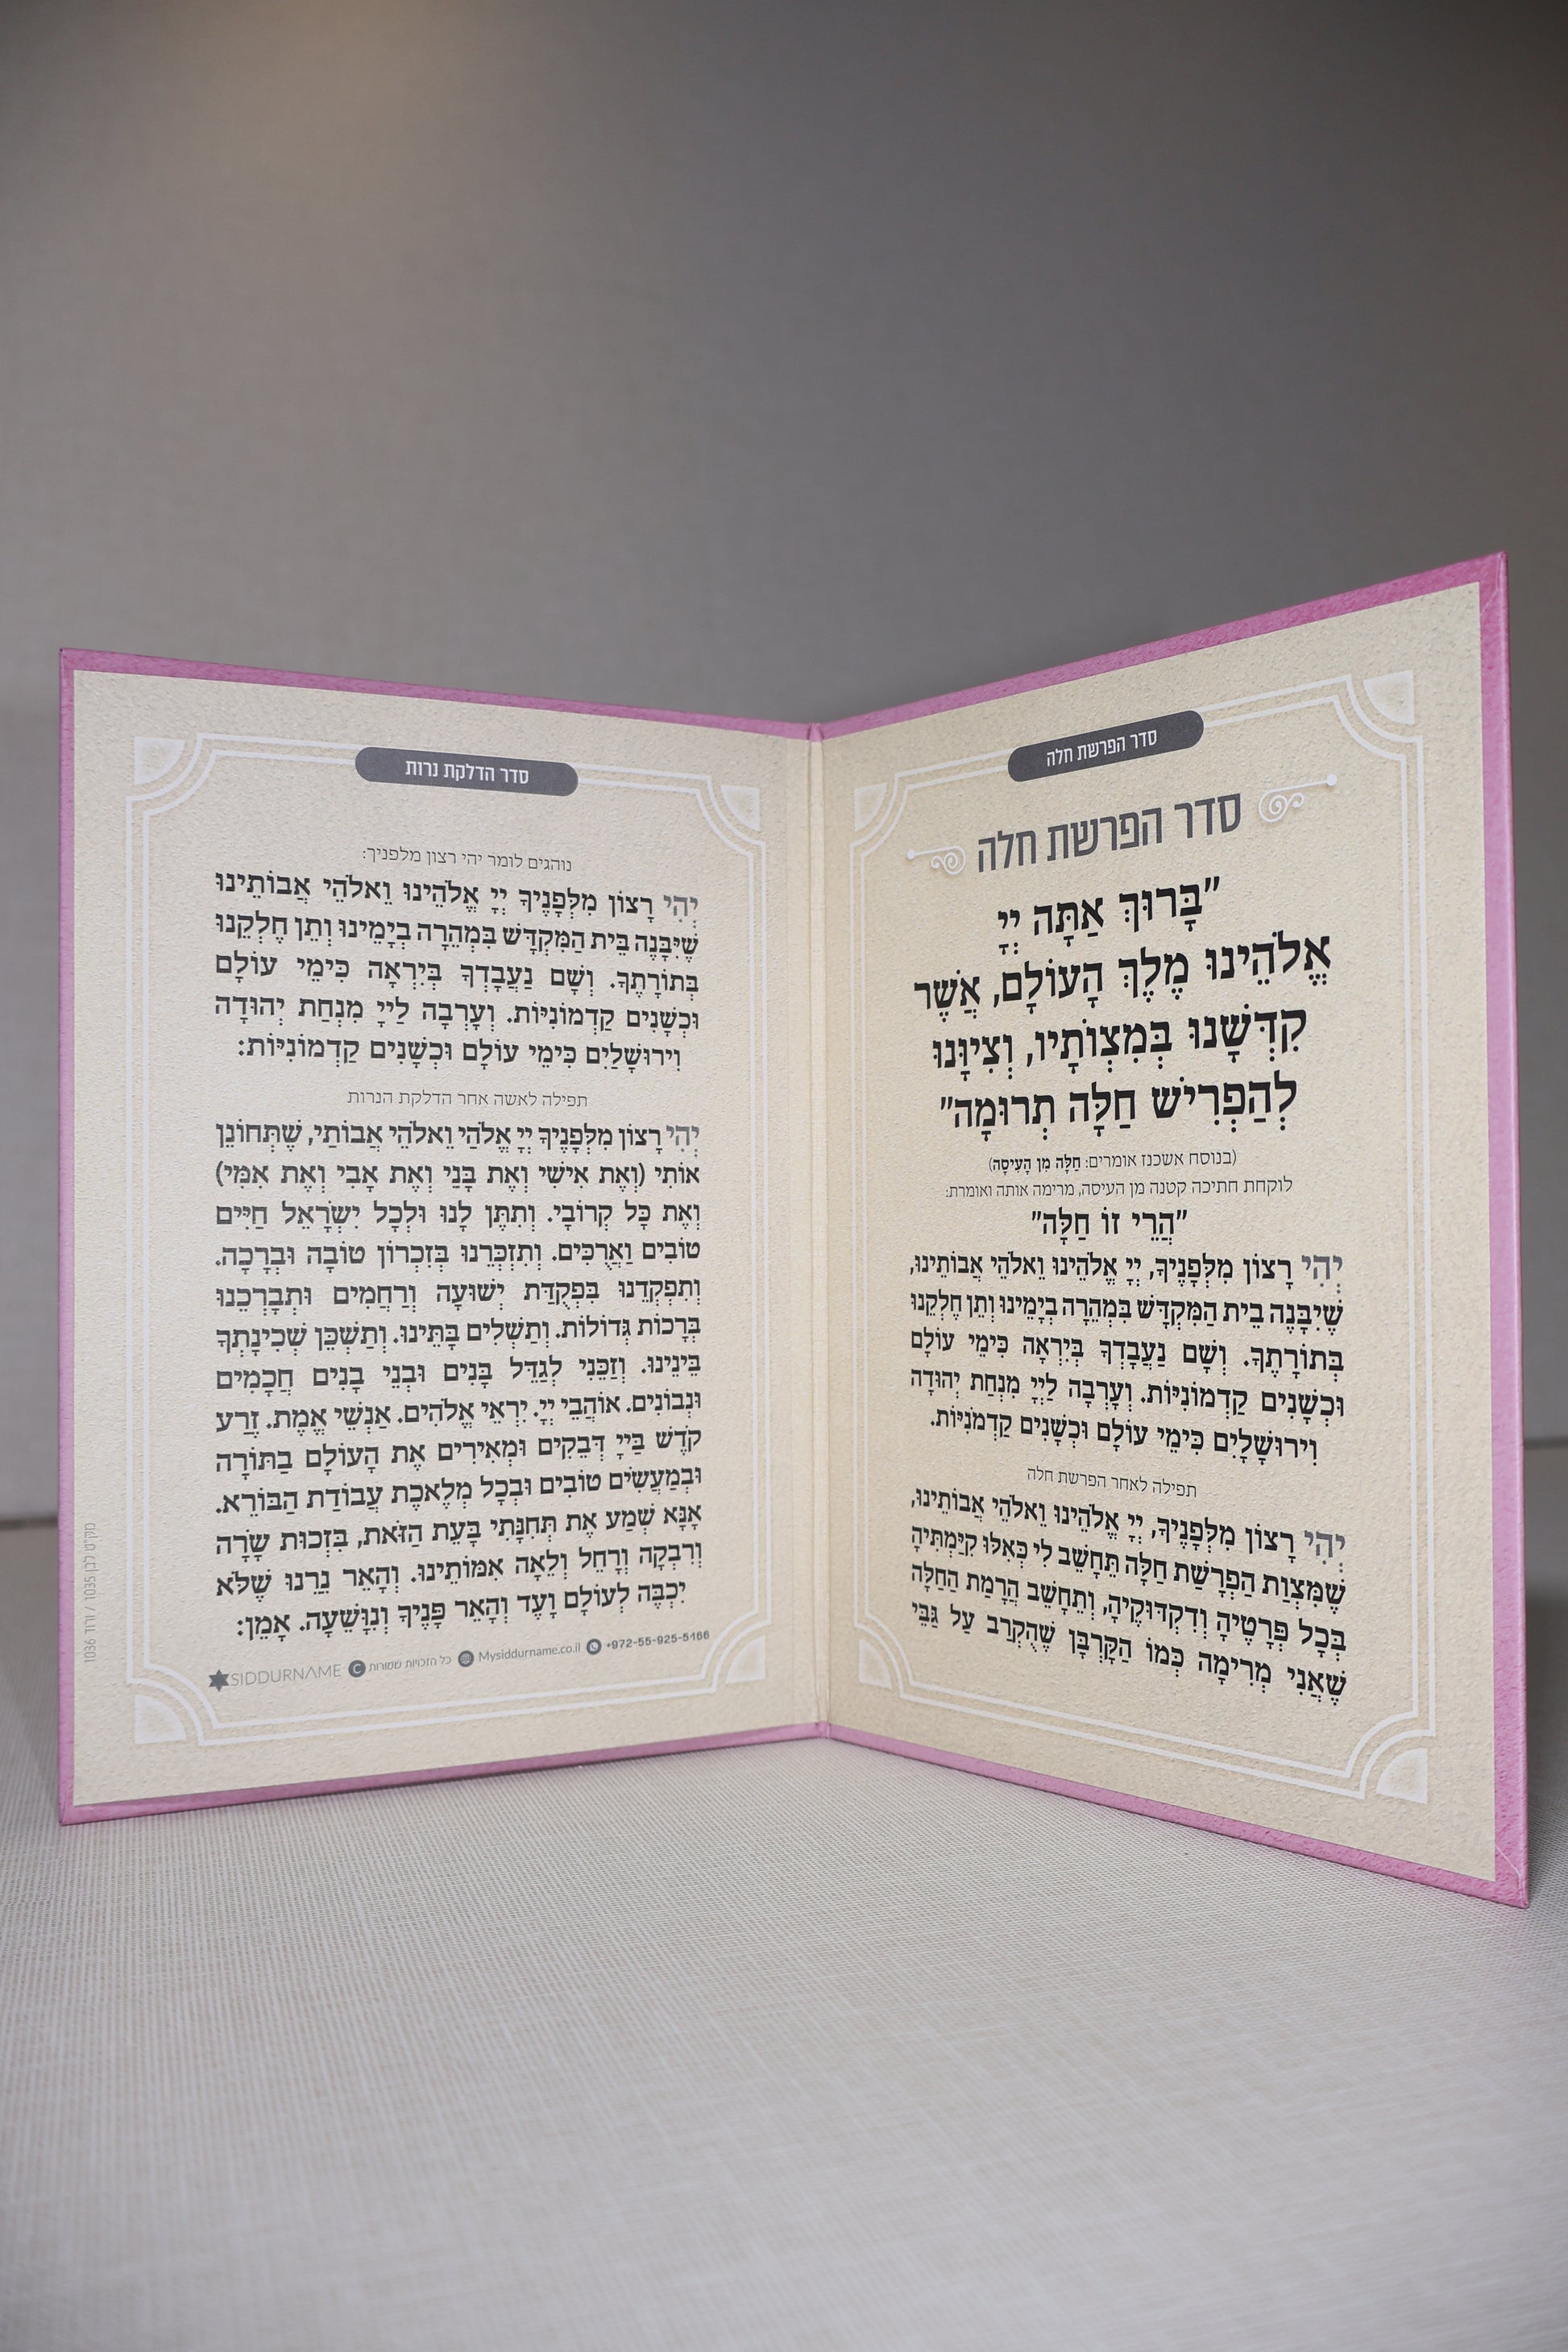 סדר הפרשת חלה
סדר הפרשת חלה
"בָּרוּךְ אַתָּה יְיָ
אֱלֹהֵינוּ מֶלֶךְ הָעוֹלָם, אֲשֶׁר
קִדְּשָׁנוּ בְּמִצְוֹתָיו, וְצִיוָּנוּ
לְהַפְרִישׁ חַלָּה תְּרוּמָה"
(בנוסח אשכנז אומרים: חַלָּה מִן הָעִיסָה)
לוקחת חתיכה קטנה מן העיסה, מרימה אותה ואומרת:
"הֲרֵי זוֹ חַלָּה"
יְהִי רָצוֹן מִלְּפָנֶיךָ, יְיָ אֱלֹהֵינוּ וֵאלֹהֵי אֲבוֹתֵינוּ,
שֶׁיִּבָּנֶה בֵית הַמִּקְדָּשׁ בִּמְהֵרָה בְיָמֵינוּ וְתֵן חֶלְקֵנוּ
בְּתוֹרָתֶךָ. וְשָׁם נַעֲבָדְךָ בְּיִרְאָה כִּימֵי עוֹלָם
וּכְשָׁנִים קַדְמוֹנִיּוֹת. וְעָרְבָה לַייָ מִנְחַת יְהוּדָה
וִירוּשָׁלָיִם כִּימֵי עוֹלָם וּכְשָׁנִים קַדְמֹנִיּוֹת.
תפילה לאחר הפרשת חלה
יְהִי רָצוֹן מִלְּפָנֶיךָ, יְיָ אֱלֹהֵינוּ וֵאלֹהֵי אֲבוֹתֵינוּ,
שֶׁמִּצְוַת הַפְרָשַׁת חַלָּה תֵּחָשֵׁב לִי כְּאִלּוּ קִיַּמְתִּיהָ
בְּכָל פְּרָטֶיהָ וְדִקְדּוּקֶיהָ, וְתֵחָשֵׁב הֲרָמַת הַחַלָּה
שֶׁאֲנִי מְרִימָה כְּמוֹ הַקָּרְבָּן שֶׁהֻקְרַב עַל גַּבֵּי
סדר הדלקת נרות
נוהגים לומר יהי רצון מלפניך:
יְהִי רָצוֹן מִלְּפָנֶיךָ יְיָ אֱלֹהֵינוּ וֵאלֹהֵי אֲבוֹתֵינוּ
שֶׁיִּבָּנֶה בֵּית הַמִּקְדָּשׁ בִּמְהֵרָה בְיָמֵינוּ וְתֵן חֶלְקֵנוּ
בְּתוֹרָתֶךָ. וְשָׁם נַעֲבָדְךָ בְּיִרְאָה כִּימֵי עוֹלָם
וּכְשָׁנִים קַדְמוֹנִיּוֹת. וְעָרְבָה לַייָ מִנְחַת יְהוּדָה
וִירוּשָׁלַיִם כִּימֵי עוֹלָם וּכְשָׁנִים קַדְמוֹנִיּוֹת:
תפילה לאשה אחר הדלקת הנרות
יְהִי רָצוֹן מִלְּפָנֶיךָ יְיָ אֱלֹהַי וֵאלֹהֵי אֲבוֹתַי, שֶׁתְּחוֹנֵן
אוֹתִי (וְאֶת אִישִׁי וְאֶת בָּנַי וְאֶת אָבִי וְאֶת אִמִּי)
וְאֶת כָּל קְרוֹבָי. וְתִתֶּן לָנוּ וּלְכָל יִשְׂרָאֵל חַיִּים
טוֹבִים וַאֲרֻכִּים. וְתִזְכְּרֵנוּ בְּזִכְרוֹן טוֹבָה וּבְרָכָה.
וְתִפְקְדֵנוּ בִּפְקֻדַּת יְשׁוּעָה וְרַחֲמִים וּתְבָרְכֵנוּ
בְּרָכוֹת גְּדוֹלוֹת. וְתַשְׁלִים בָּתֵּינוּ. וְתַשְׁכֵּן שְׁכִינָתְךָ
בֵּינֵינוּ. וְזַכֵּנִי לְגַדֵּל בָּנִים וּבְנֵי בָנִים חֲכָמִים
וּנְבוֹנִים. אוֹהֲבֵי יְיָ. יִרְאֵי אֱלֹהִים. אַנְשֵׁי אֱמֶת. זֶרַע
קֹדֶשׁ בַּייָ דְּבֵקִים וּמְאִירִים אֶת הָעוֹלָם בַּתּוֹרָה
וּבְמַעֲשִׂים טוֹבִים וּבְכָל מְלֶאכֶת עֲבוֹדַת הַבּוֹרֵא.
אָנָּא שְׁמַע אֶת תְּחִנָּתִי בָּעֵת הַזֹּאת, בִּזְכוּת שָׂרָה
וְרִבְקָה וְרָחֵל וְלֵאָה אִמּוֹתֵינוּ. וְהָאֵר נֵרֵנוּ שֶׁלֹּא
יִכְבֶּה לְעוֹלָם וָעֶד וְהָאֵר פָּנֶיךָ וְנִוָּשֵׁעָה. אָמֵן:
SIDDURNAME © כל הזכויות שמורות Mysiddurname.co.il +972-55-925-5166
מק״ט לבן 1035 / ורוד 1036